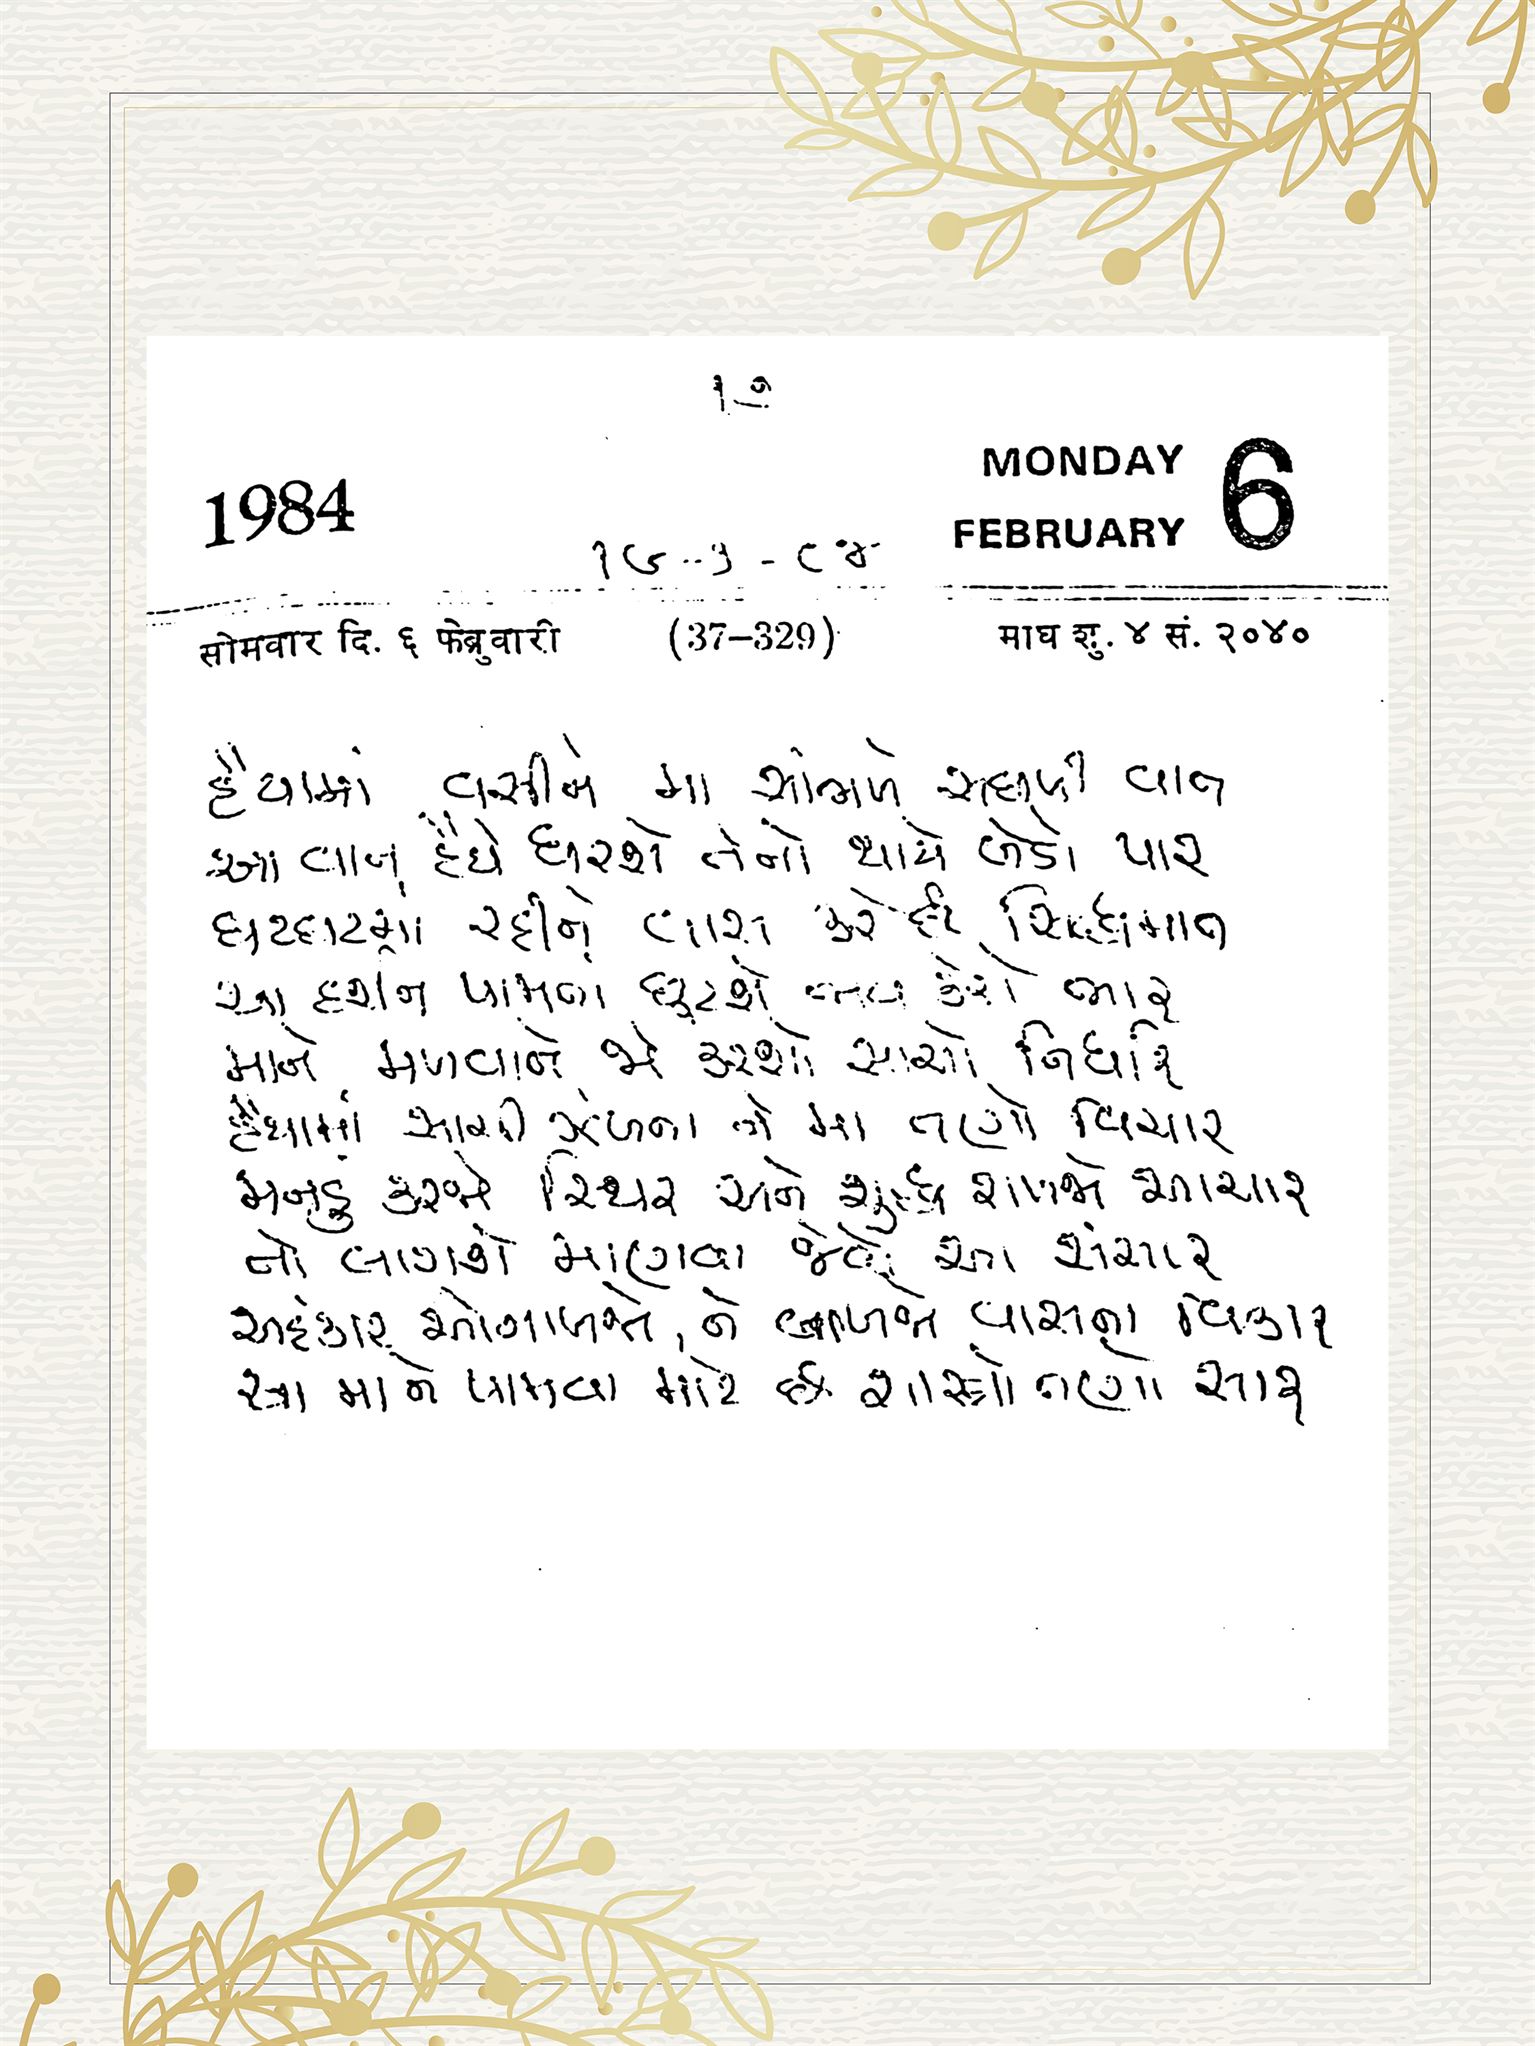 ૧૭
1984
MONDAY
FEBRUARY 6
૧૯-૩-૮૪
सोमवार दि. ६ फेब्रुवारी (37–329) माघ शु. ४ सं. २०४०
હૈયામાં વસીને મા સાંભળે સઘળી વાત
આ વાત હૈયે ધરશે તેનો થાયે બેડો પાર
ઘટઘટમાં રહીને વાસ કરે છે સિદ્ધમાત
આ દર્શન પામતાં છુટશે ભવ કેરો ભાર
માને મળવાને જો કરશો સાચો નિર્ધાર
હૈયામાં સાચી ઝંખના ને મા તણો વિચાર
મનડું કરજો સ્થિર અને શુદ્ધ રાખજો આચાર
તો લાગશે માણવા જેવો આ સંસાર
અહંકાર ઓગાળજે, ને બાળજે વાસના વિકાર
આ માને પામવા માટે છે શાસ્ત્રો તણો સાર